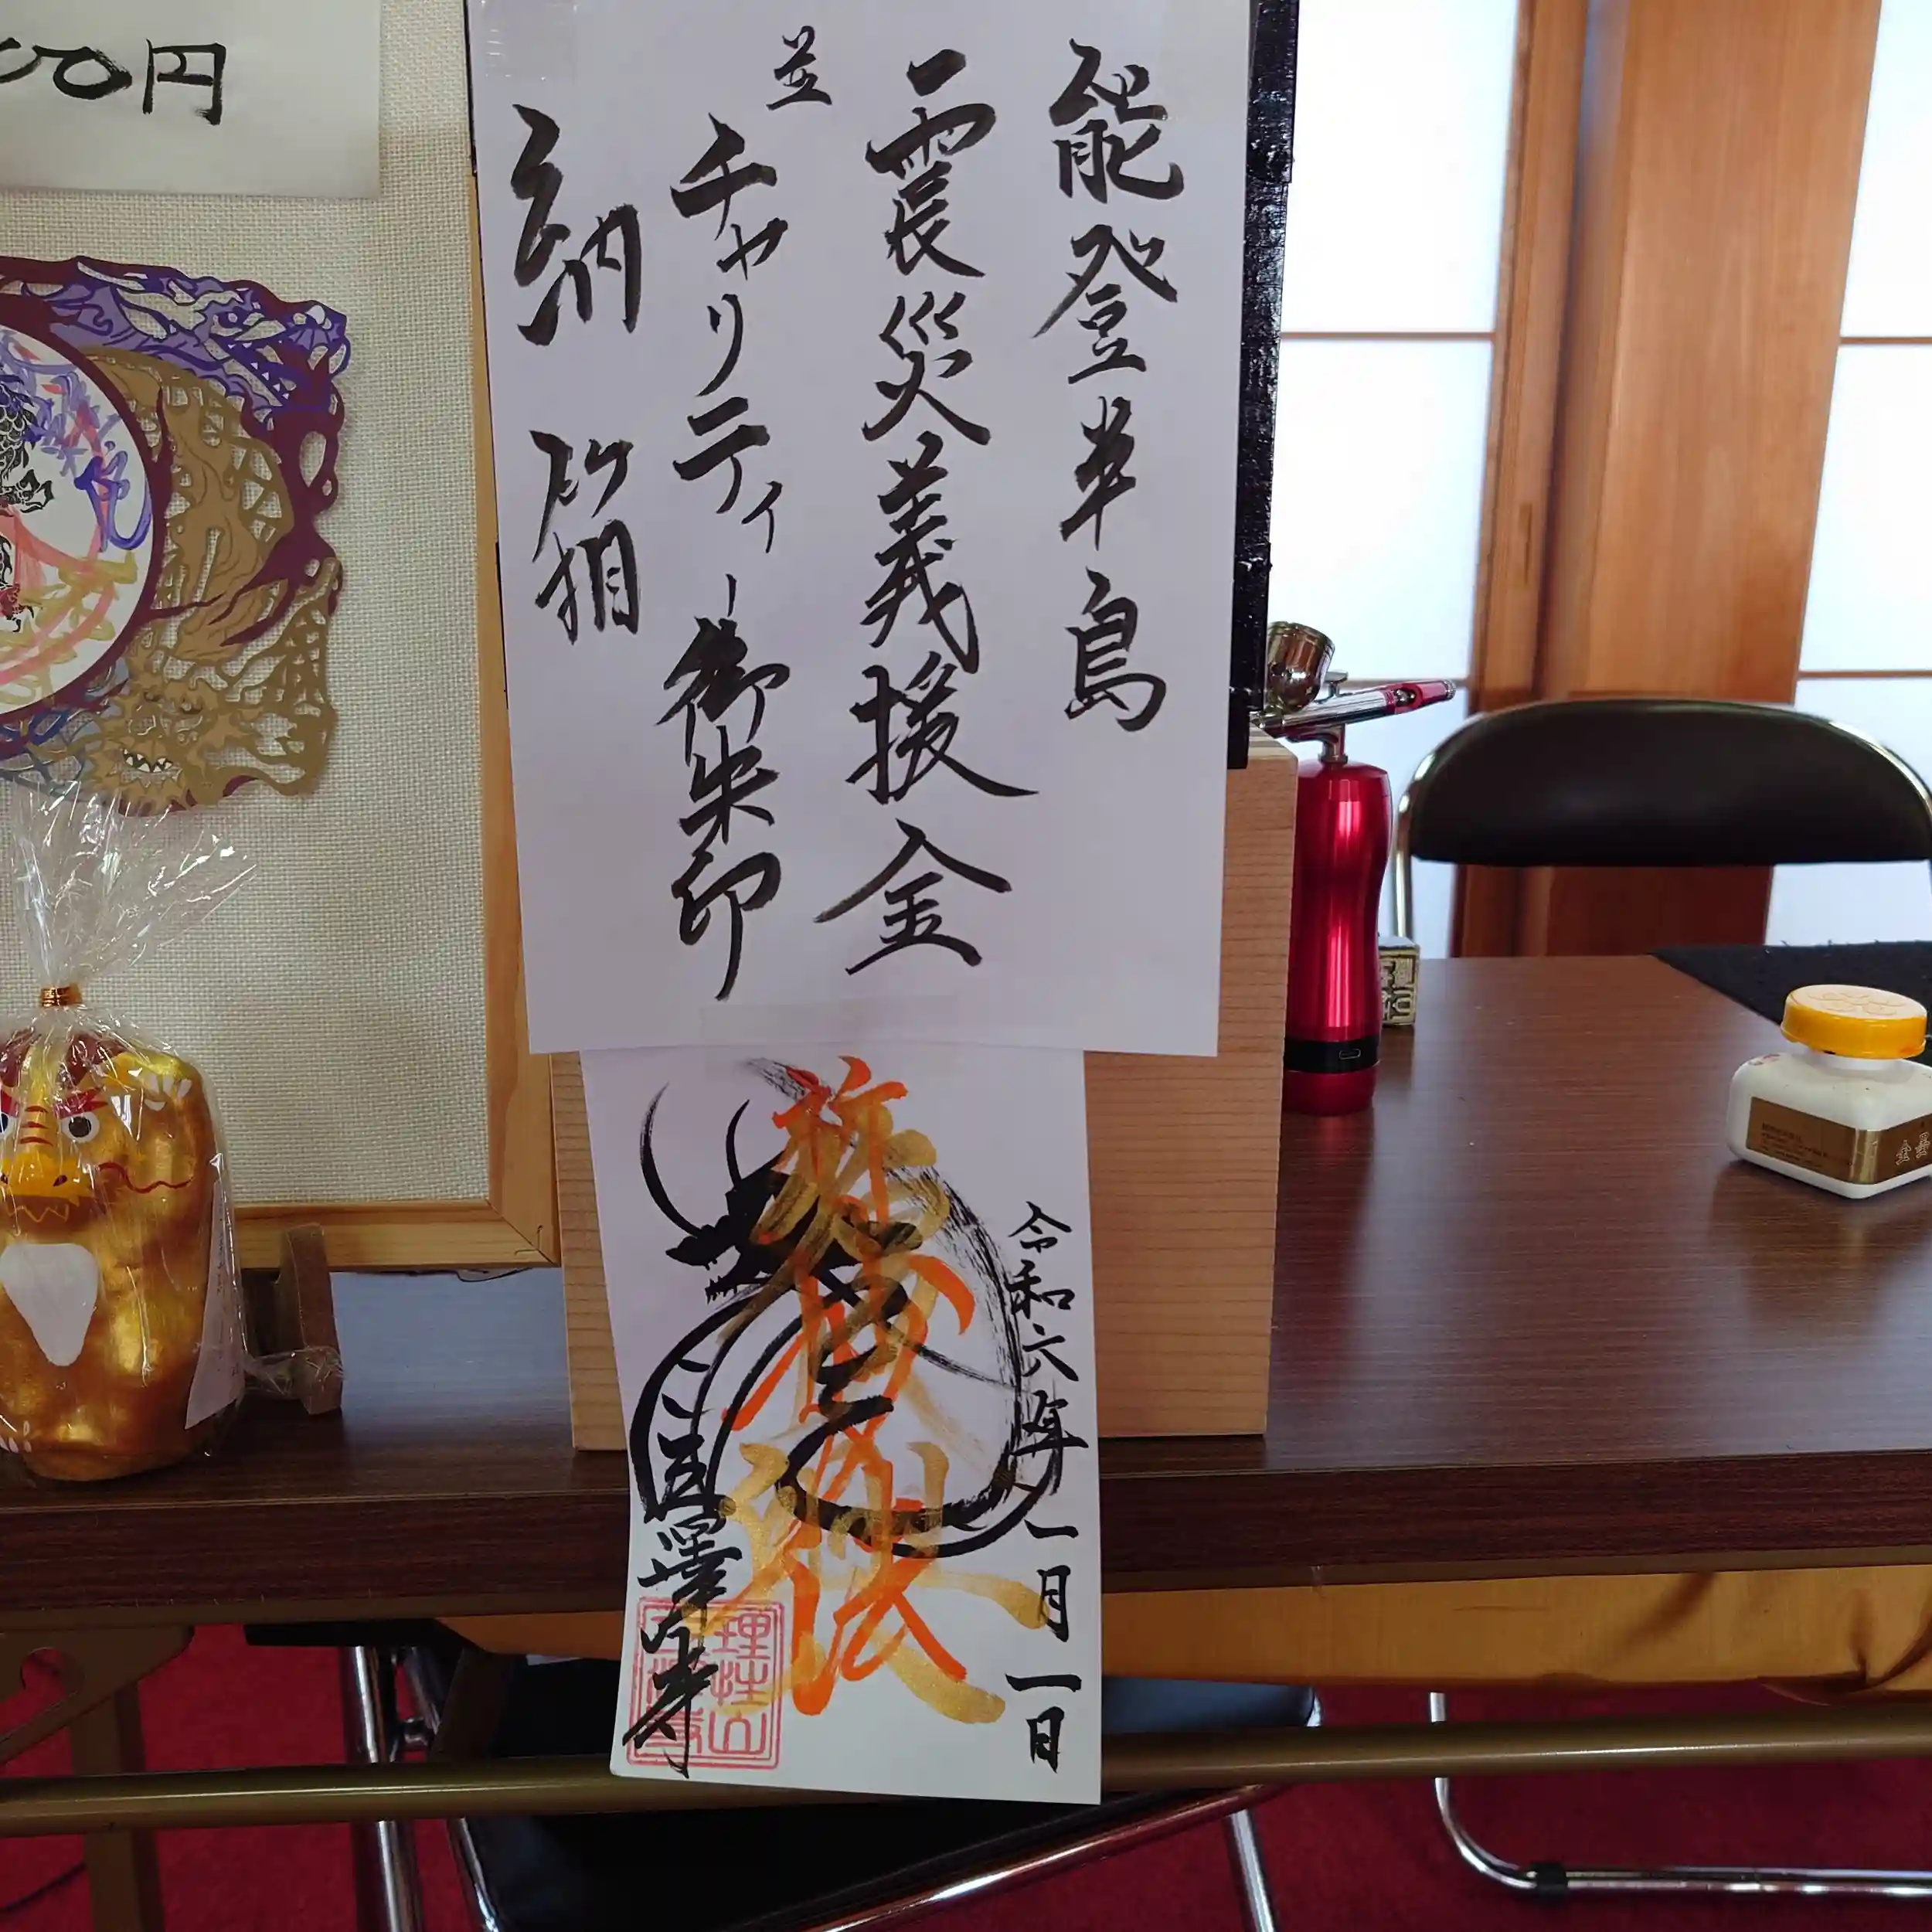 能登半島
震災義援金
並
チャリティー御朱印
納所箱
令和六年
一月一日
理性山
金墨
円